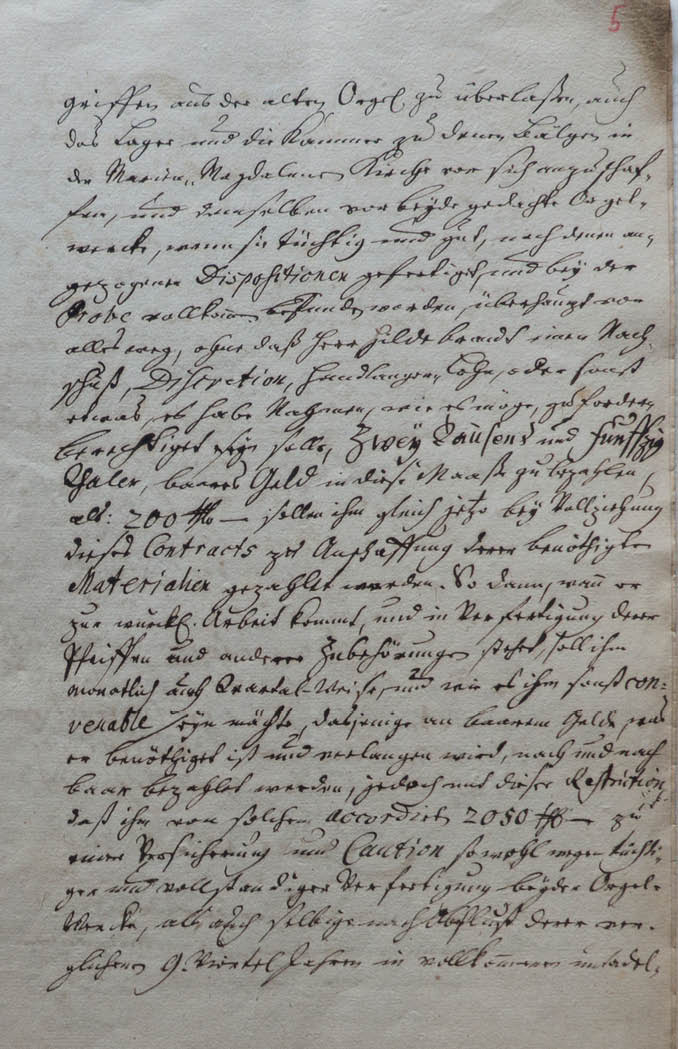 5
griffen aus der alten Orgel, zu überlaßen, auch
das Lager und die Kammer zu denen Bälgen in
der Marien-Magdalenen Kirche vor sich anzuschaf-
fen, und demselben vor beyde gedachte Orgel-
wercke, wenn sie tüchtig und gut, nach denen an-
gezogenen Dispositionen gefertiget, und bey der
Probe vollkom̅en befunden worden, überhaupt vor
alles weg, ohne daß Herr Hildebrandt einen Nach-
schuß, Discretion, Handlanger-Lohn, oder sonst
etwas, es habe Nahmen, wie es möge, zu fordern
berechtiget seyn solle, Zwey Tausend und Funffzig
Thaler, baares Geld in diese Maaße zu bezahlen,
als: 200 thlr — sollen ihm gleich jetzo bey Vollziehung
dieses Contracts zu Anschaffung derer benöthigten
Materialien gezahlet werden. So dann, wann er
zur würckl. Arbeit kommt, und in Verfertigung derer
Pfeiffen und anderer Zubehörungen stehet, soll ihm
monatlich auch Quartal-Weise, und wie es ihm sonst con-
venable seyn möchte, dasjenige an baarem Gelde, was
er benöthiget ist und verlangen wird, nach und nach
baar bezahlet werden, jedoch mit dieser Restriction,
daß ihm von solchen accordirten 2050 thlr — zu
einer Versicherung und Caution sowohl wegen tüchti-
ger und vollständiger Verfertigung beyder Orgel-
Wercke, als auch selbige nach Abfluß derer ver-
glichenen 9. Viertel Jahren in vollkommenen untadel-